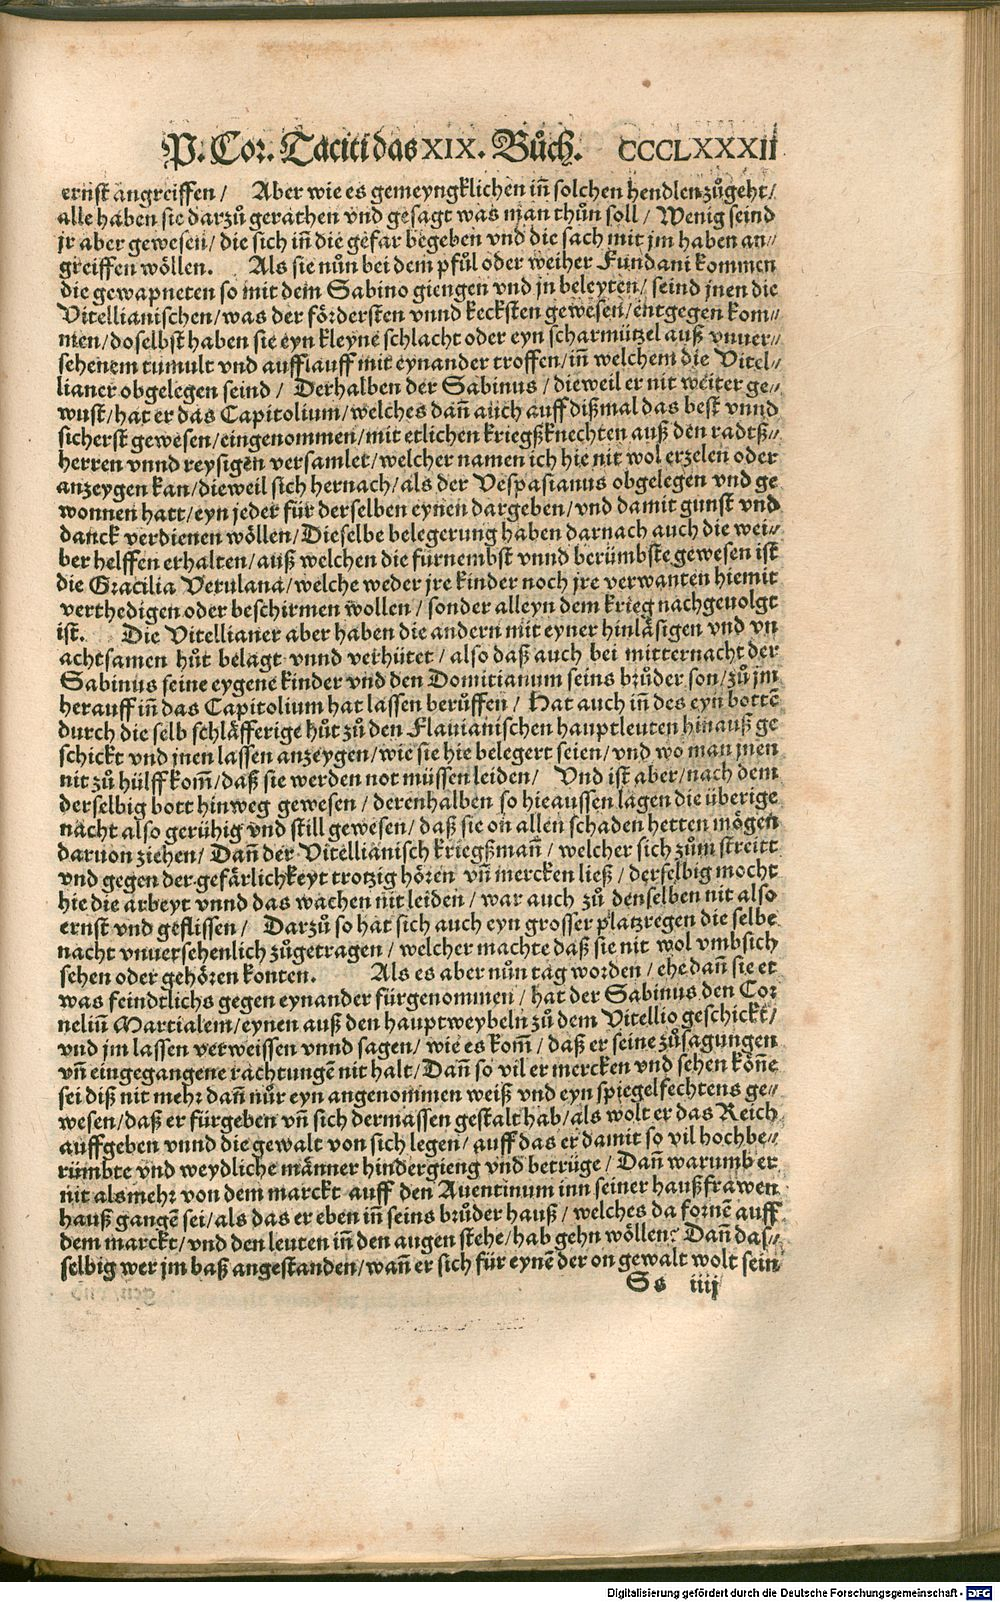 P. Cor. Taciti das XIX. Bůch. CCCLXXXII
ernst angreiffen / Aber wie es gemeyngklichen in̄ solchen hendlen zůgeht /
alle haben sie darzů gerathen vnd gesagt was man thůn soll / Wenig seind
jr aber gewesen / die sich in̄ die gefar begeben vnd die sach mit jm haben an⸗
greiffen wöllen. Als sie nůn bei dem pfůl oder weiher Fundani kommen
die gewapneten so mit dem Sabino giengen vnd jn beleyten / seind jnen die
Vitellianischen / was der fördersten vnnd kecksten gewesen / entgegen kom⸗
men / doselbst haben sie eyn kleyne schlacht oder eyn scharmützel auß vnuer⸗
sehenem tumult vnd aufflauff mit eynander troffen / in̄ welchem die Vitel⸗
lianer obgelegen seind / Derhalben der Sabinus / dieweil er nit weiter ge⸗
wust / hat er das Capitolium / welches dan̄ auch auff dißmal das best vnnd
sicherst gewesen / eingenommen / mit etlichen kriegßknechten auß den radtß⸗
herren vnnd reysigen versamlet / welcher namen ich hie nit wol erzelen oder
anzeygen kan / dieweil sich hernach / als der Vespasianus obgelegen vnd ge
wonnen hatt / eyn jeder für derselben eynen dargeben / vnd damit gunst vnd
danck verdienen wöllen / Dieselbe belegerung haben darnach auch die wei⸗
ber helffen erhalten / auß welchen die fürnembst vnnd berümbste gewesen ist
die Gracilia Verulana / welche weder jre kinder noch jre verwanten hiemit
verthedigen oder beschirmen wollen / sonder alleyn dem krieg nachgeuolgt
ist. Die Vitellianer aber haben die andern mit eyner hinläsigen vnd vn
achtsamen hůt belagt vnnd verhütet / also daß auch bei mitternacht der
Sabinus seine eygene kinder vnd den Domitianum seins brůder son / zů jm
herauff in̄ das Capitolium hat lassen berůffen / Hat auch in̄ des eyn bottē
durch die selb schläfferige hůt zů den Flauianischen hauptleuten hinauß ge
schickt vnd jnen lassen anzeygen / wie sie hie belegert seien / vnd wo man jnen
nit zů hülff kom̄ / daß sie werden not müssen leiden / Vnd ist aber / nach dem
derselbig bott hinweg gewesen / derenhalben so hieaussen lagen die überige
nacht also gerühig vnd still gewesen / daß sie on allen schaden hetten mögen
daruon ziehen / Dan̄ der Vitellianisch kriegßman̄ / welcher sich zům streitt
vnd gegen der gefärlichkeyt trotzig hören vn̄ mercken ließ / derselbig mocht
hie die arbeyt vnnd das wachen nit leiden / war auch zů denselben nit also
ernst vnd geflissen / Darzů so hat sich auch eyn grosser platzregen die selbe
nacht vnuersehenlich zůgetragen / welcher machte daß sie nit wol vmbsich
sehen oder gehören konten. Als es aber nůn tag worden / ehe dan̄ sie et
was feindtlichs gegen eynander fürgenommen / hat der Sabinus den Cor
neliū Martialem / eynen auß den hauptweybeln zů dem Vitellio geschickt /
vnd jm lassen verweissen vnnd sagen / wie es kom̄ / daß er seine zůsagungen
vn̄ eingegangene rachtungē nit halt / Dan̄ so vil er mercken vnd sehen kön̄e
sei diß nit mehr dan̄ nůr eyn angenommen weiß vnd eyn spiegelfechtens ge⸗
wesen / daß er fürgeben vn̄ sich dermassen gestalt hab / als wolt er das Reich
auffgeben vnnd die gewalt von sich legen / auff das er damit so vil hochbe⸗
rümbte vnd weydliche männer hindergieng vnd betrüge / Dan̄ warumb er
nit alsmehr von dem marckt auff den Auentinum inn seiner haußfrawen
hauß gangē sei / als das er eben in̄ seins brůder hauß / welches da fornē auff
dem marckt / vnd den leuten in̄ den augen stehe / hab gehn wöllen? Dan̄ das⸗
selbig wer jm baß angestanden / wan̄ er sich für eynē der on gewalt wolt sein
Ss iiij
Digitalisierung gefördert durch die Deutsche Forschungsgemeinschaft - DFG